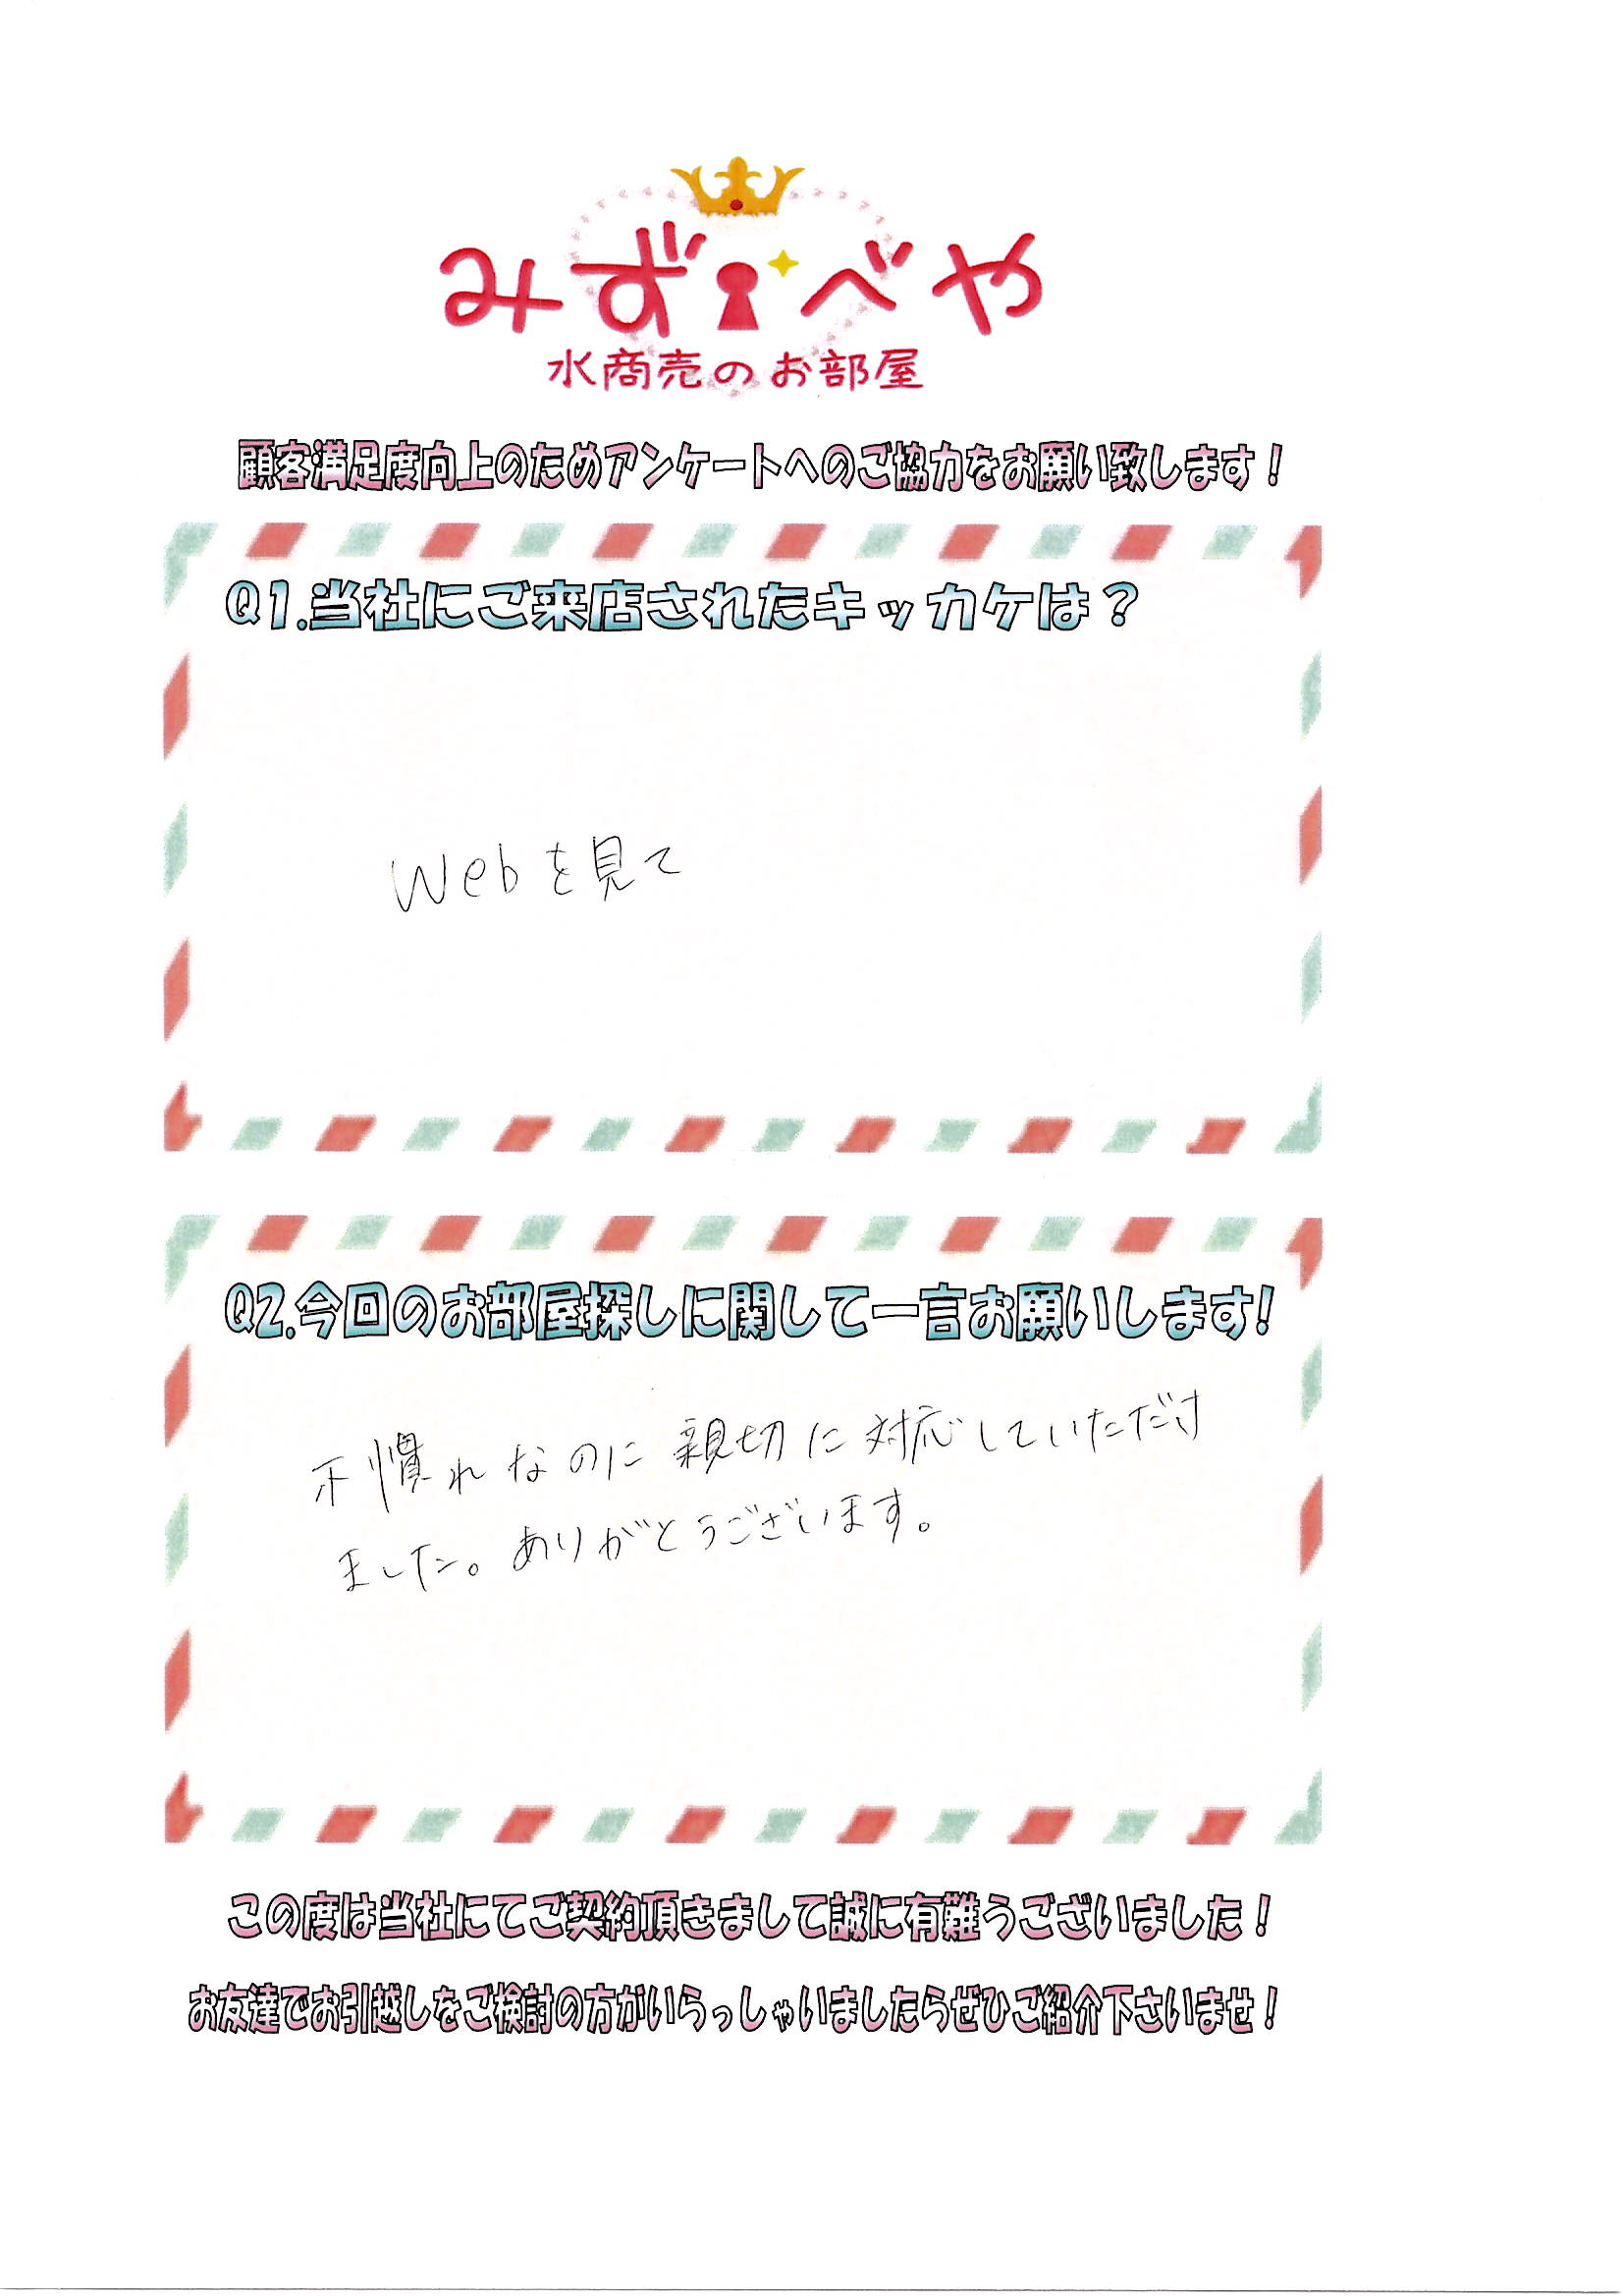 みずべや
水商売のお部屋
顧客満足度向上のためアンケートへのご協力をお願い致します！
Q1.当社にご来店されたキッカケは？
Webを見て
Q2.今回のお部屋探しに関して一言お願いします!
不慣れなのに親切に対応していただけ
ました。ありがとうございます。
この度は当社にてご契約頂きまして誠に有難うございました！
お友達でお引越しをご検討の方がいらっしゃいましたらぜひご紹介下さいませ！